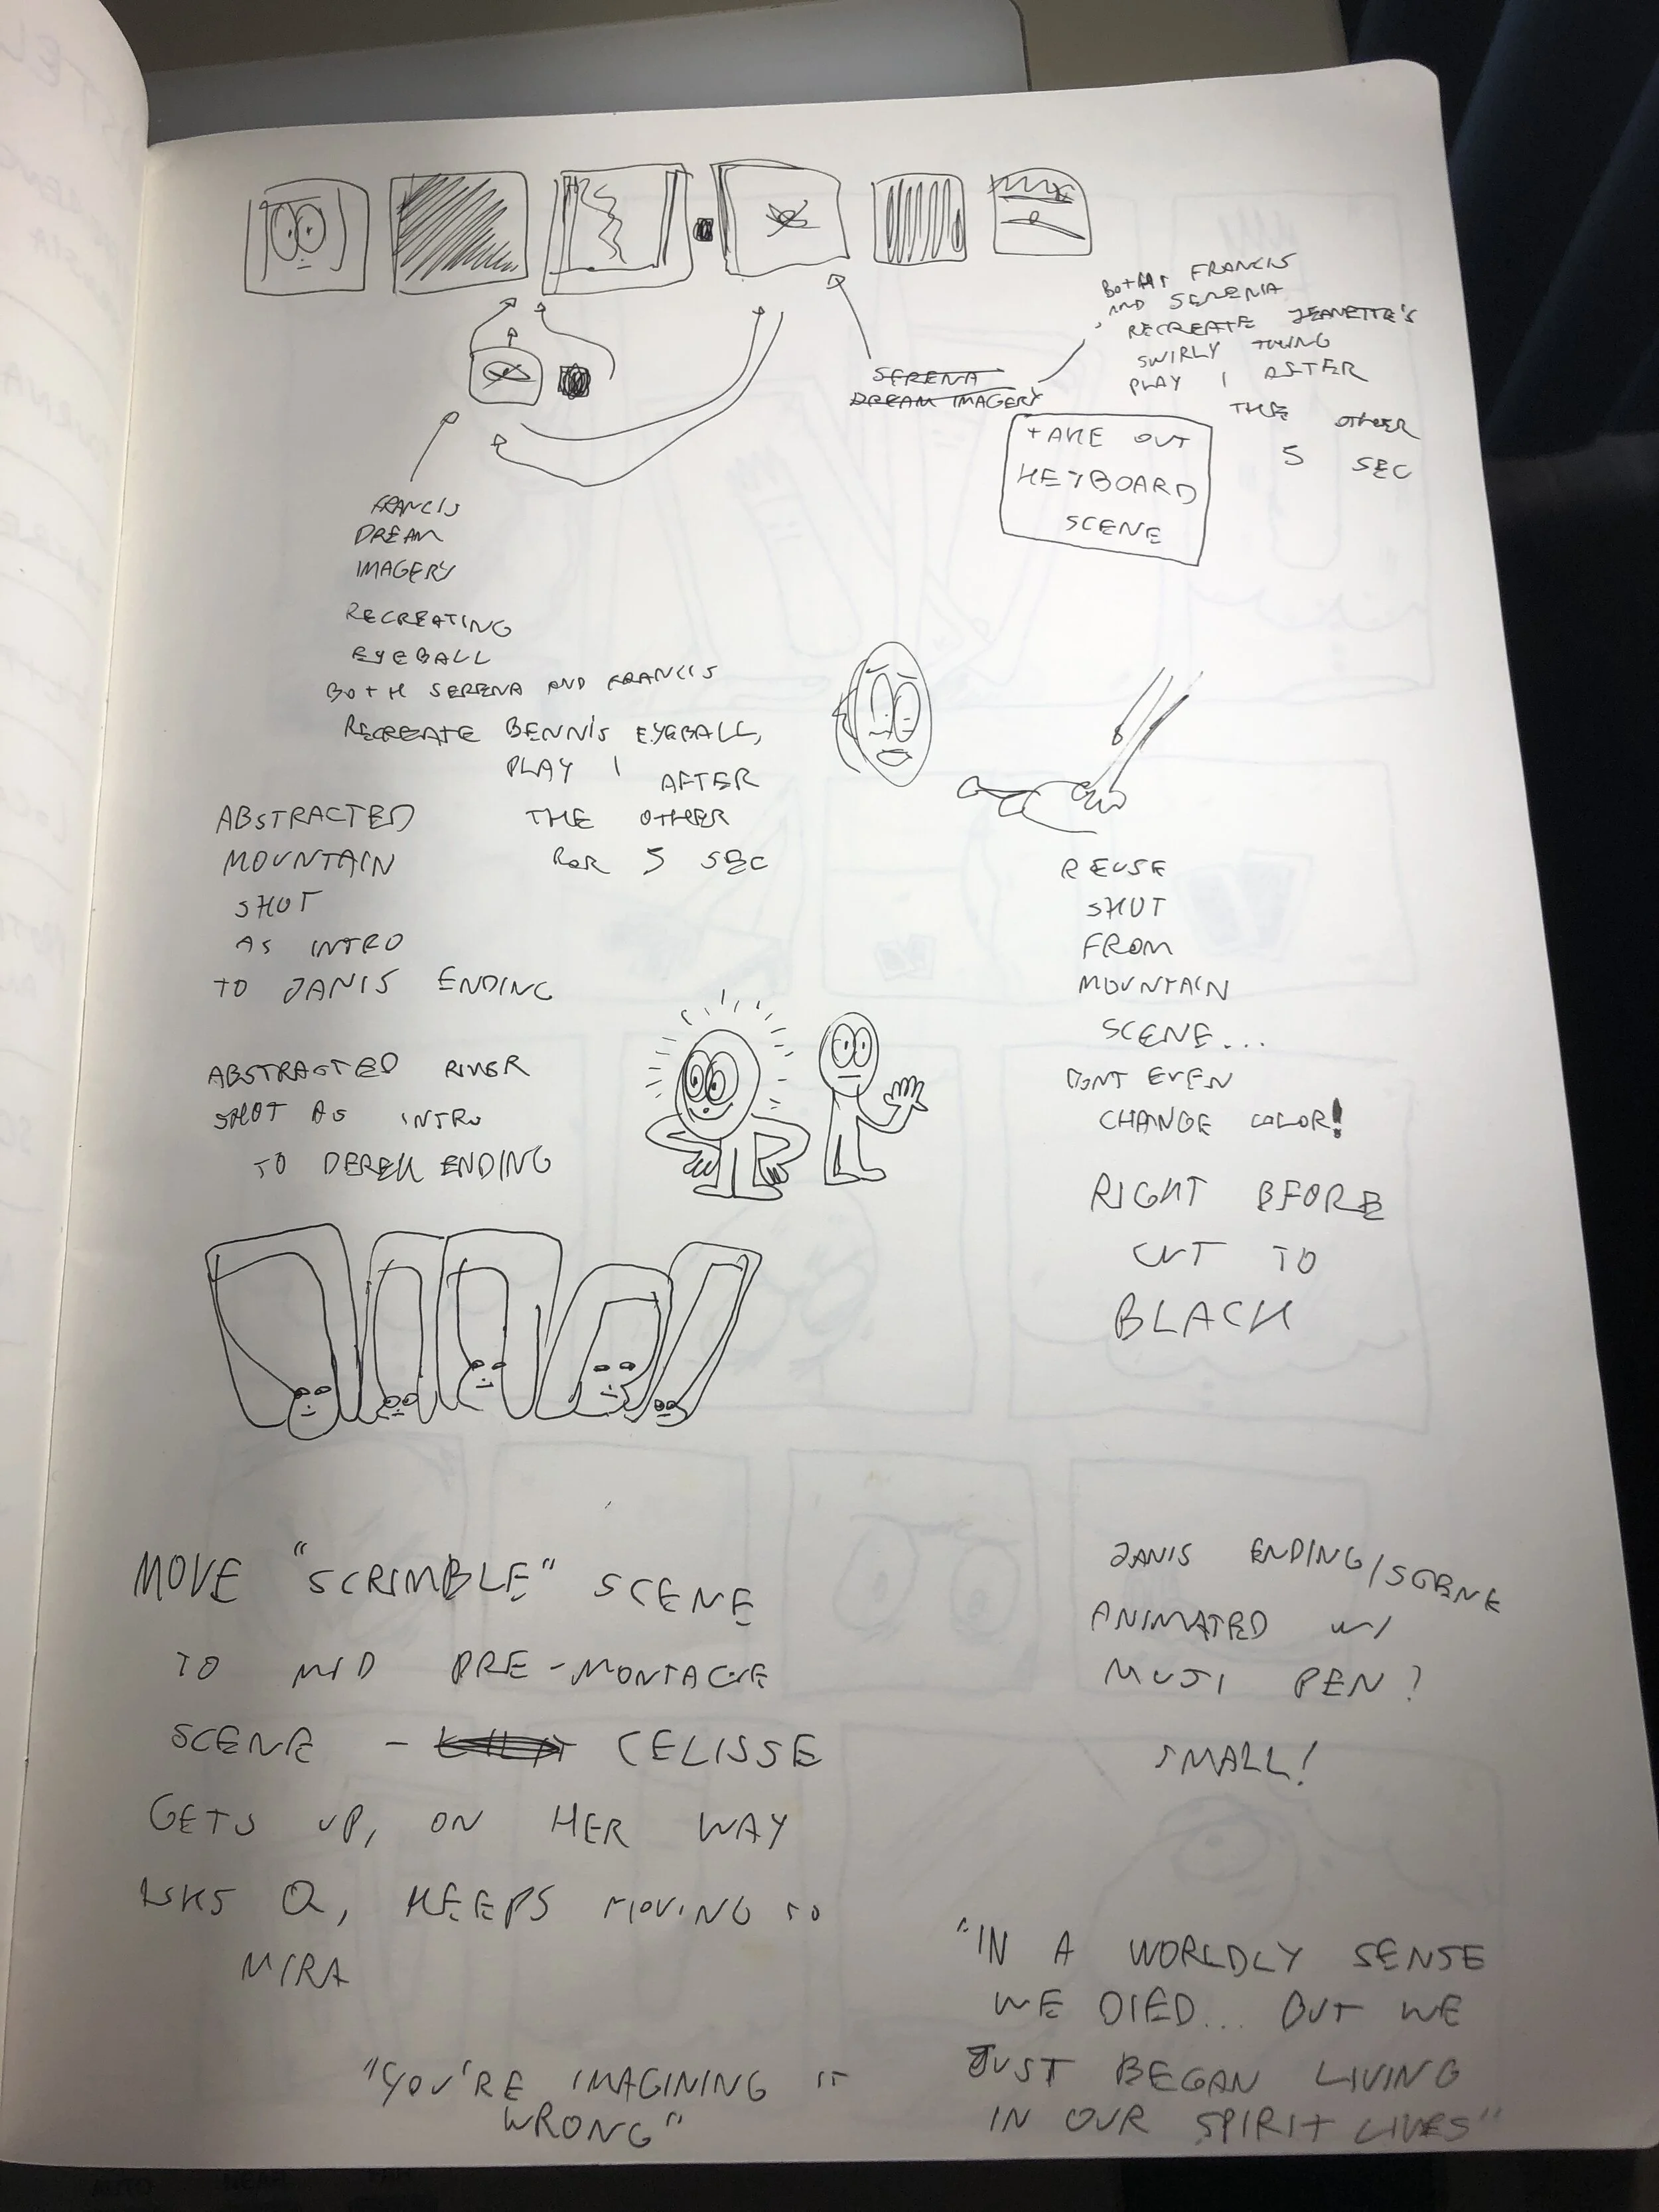 BOTH FRANCIS
AND SERENA
RECREATE JEANETTE'S
SWIRLY THING
PLAY 1 AFTER
THE OTHER
5 SEC
SERENA
DREAM IMAGERY
TAKE OUT
KEYBOARD
SCENE
FRANCIS
DREAM
IMAGERY
RECREATING
EYEBALL
BOTH SERENA AND FRANCIS
RECREATE BENNIS EYEBALL,
PLAY 1 AFTER
THE OTHER
FOR 5 SEC
ABSTRACTED
MOUNTAIN
SHOT
AS INTRO
TO JANIS ENDING
ABSTRACTED RIVER
SHOT AS INTRO
TO DEREK ENDING
REUSE
SHOT
FROM
MOUNTAIN
SCENE...
DONT EVEN
CHANGE COLOR!
RIGHT BFORE
CUT TO
BLACK
MOVE "SCRIMBLE" SCENE
TO MID PRE-MONTAGE
SCENE - CELISSE
GETS UP, ON HER WAY
ASKS Q, KEEPS MOVING TO
MIRA
JANIS ENDING/SCENE
ANIMATED W/
MUJI PEN?
SMALL!
"YOU'RE IMAGINING IT
WRONG"
"IN A WORLDLY SENSE
WE DIED... BUT WE
JUST BEGAN LIVING
IN OUR SPIRIT LIVES"